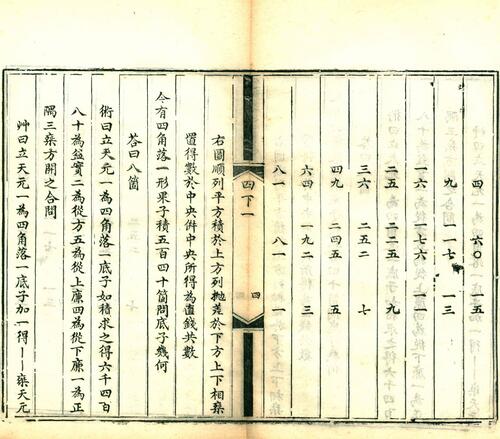 四 六〇 一五
九 一一七 一三
一六 一七六 一一
二五 二二五 九
三六 二五二 七
四九 二四五 五
六四 一九二 三
八一 八一 一
四下一 四
右圖順列平方積於上方列拋差於下方上下相乘
置得數於中央併中央所得為直錢共數
今有四角落一形果子積五百四十箇問底子幾何
答曰八箇
術曰立天元一為四角落一底子如積求之得六千四百
八十為益實二為從方五為從上廉四為從下廉一為正
隅三乘方開之合問
艸曰立天元一為四角落一底子加一得〡〡乘天元